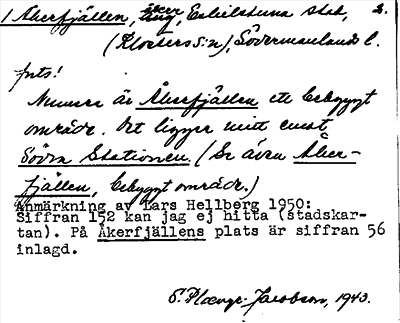 1 Åkerfjällen, åker, Eskilstuna stad, 2.
(Klosters s:n), Södermanlands l.
Numer är Åkerfjällen ett bebyggt
område. Det ligger mitt emot
Södra Stationen. (Se även Åker-
fjällen, bebyggt område.)
Anmärkning av Lars Hellberg 1950:
Siffran 152 kan jag ej hitta (stadskar-
tan). På Åkerfjällens plats är siffran 56
inlagd.
Jacobson, 1943.